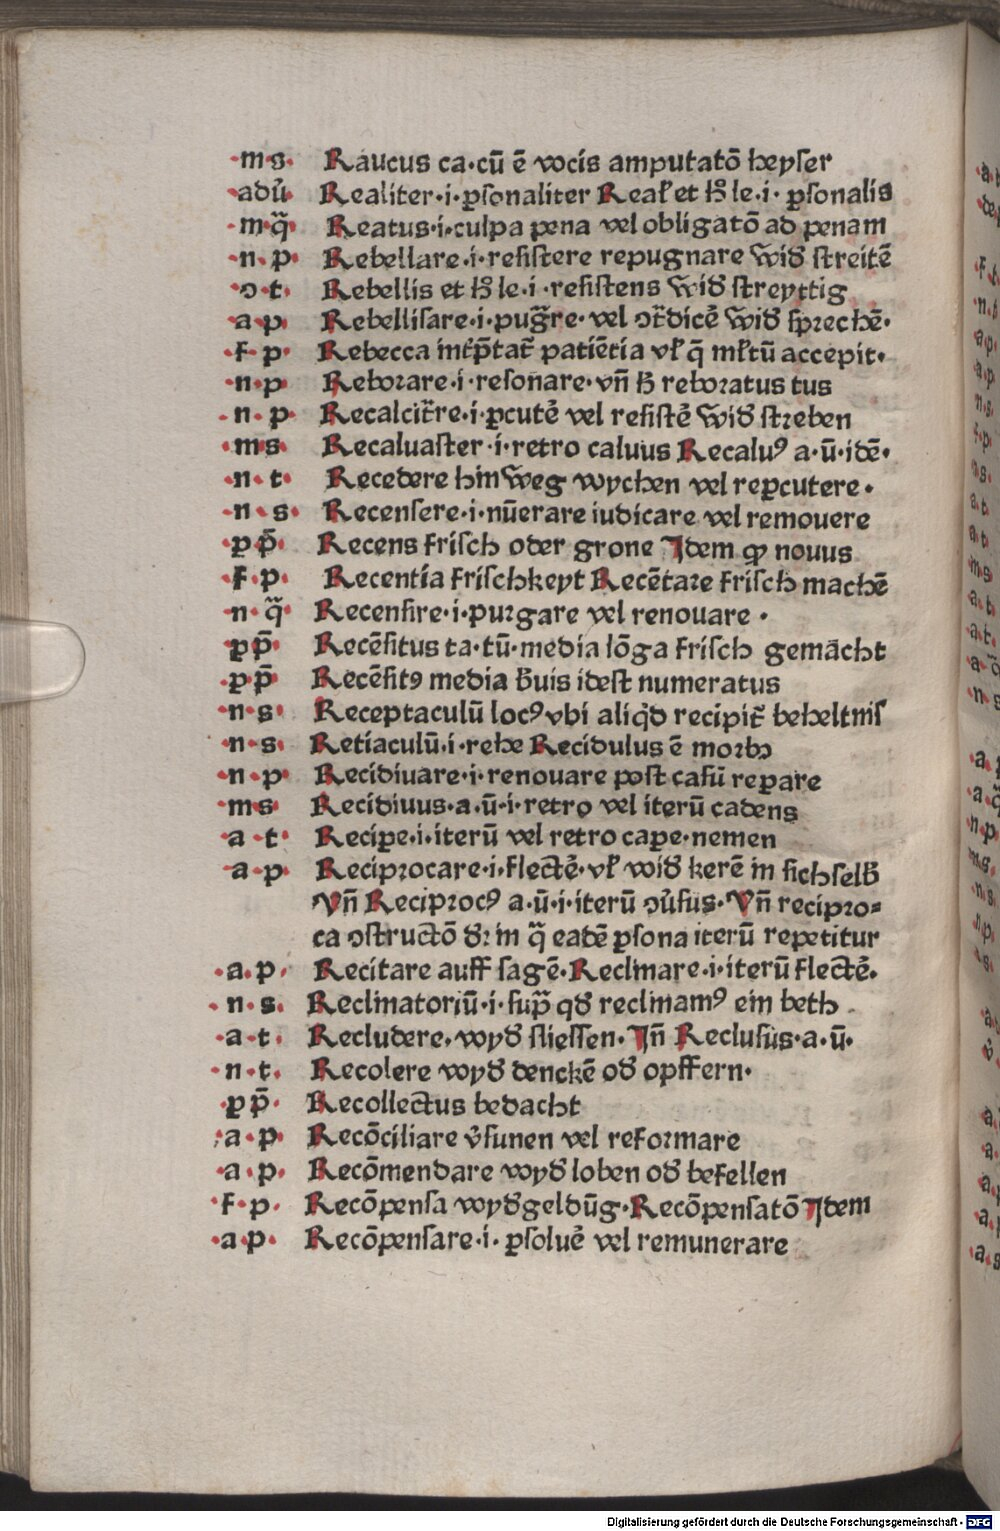 ·m·s· Raucus ca·cū ē vocis amputatō heyser
·adu̓ Realiter·i·ꝑsonaliter Reaƚ et hͦ le·i· ꝑsonalis
·m·q̄· Reatus·i·culpa pena vel obligatō ad penam
·n·p· Rebellare·i·resistere repugnare wid̕ streitē
·ↄ·t· Rebellis et hͦ le·i·resistens wid̕ streyttig
·a·p· Rebellisare·i·pug̃re·vel ↄt̃dicē wid̕ sprechē·
·f·p· Rebecca int̕p̄tat̃ patiētia vƚ q̄ mƚtū accepit·
·n·p· Reborare·i·resonare·vn̄ hͦ reboratus tus
·n·p· Recalcit̃re·i·ꝑcutē vel resistē wid̕ streben
·m·s· Recaluaster·i·retro caluus Recaluꝰ a·ū·idē·
·n·t· Recedere hinweg wychen vel reꝑcutere·
·n·s· Recensere·i·nūerare iudicare vel remouere
·ꝑp̄· Recens frisch oder grone Idem ꝙ nouus
·f·p· Recentia frischkeyt Recētare frisch machē
·n·q̄· Recensire·i·purgare vel renouare·
·ꝑp̄· Recēsitus ta·tū·media lōga frisch gemācht
·ꝑp̄· Recēsitꝰ media b̕uis idest numeratus
·n·s· Receptaculū locꝰ vbi aliq̇d recipit̃ beheltnis
·n·s· Retiaculū·i·rehe Recidulus ē morbꝰ
·n·p· Recidiuare·i·renouare post casū reꝑare
·m·s· Recidiuus·a·ū·i·retro vel iterū cadens
·a·t· Reciꝑe·i·iterū vel retro caꝑe·nemen
·a·p· Reciprocare·i·flectē·vƚ wid̕ kerē in sichselb̕
Vn̄ Reciprocꝰ a·ū·i·iterū ↄu̓sus·Vn̄ recipro⸗
ca ↄstructō d̕r in q̄ eadē ꝑsona iterū repetitur
·a·p· Recitare auff sagē·Reclinare·i·iterū flectē·
·n·s· Reclinatoriū·i·sup̄ qd̕ reclinamꝰ ein beth
·a·t· Recludere·wyd̕ sliessen·In̄ Reclusus·a·ū·
·n·t· Recolere wyd̕ denckē od̕ opffern·
ꝑp̄· Recollectus bedacht
·a·p· Recōciliare v̓sunen vel reformare
·a·p· Recōmendare wyd̕ loben od̕ befellen
·f·p· Recōpensa wyd̕geldūg·Recōpensatō Idem
·a·p· Recōpensare·i·ꝑsoluē vel remunerare
Digitalisierung gefördert durch die Deutsche Forschungsgemeinschaft - DFG